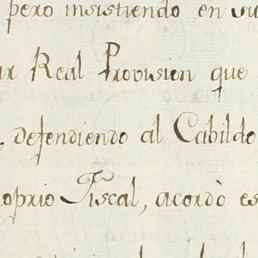 pero insistiendo en su
Real Provision que
defendiendo al Cabildo
oprio Fiscal, acordò es